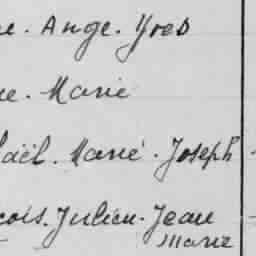 e. Ange. Yves
e. Marie
aël. Marie. Joseph
çois. Julien. Jean
Marie